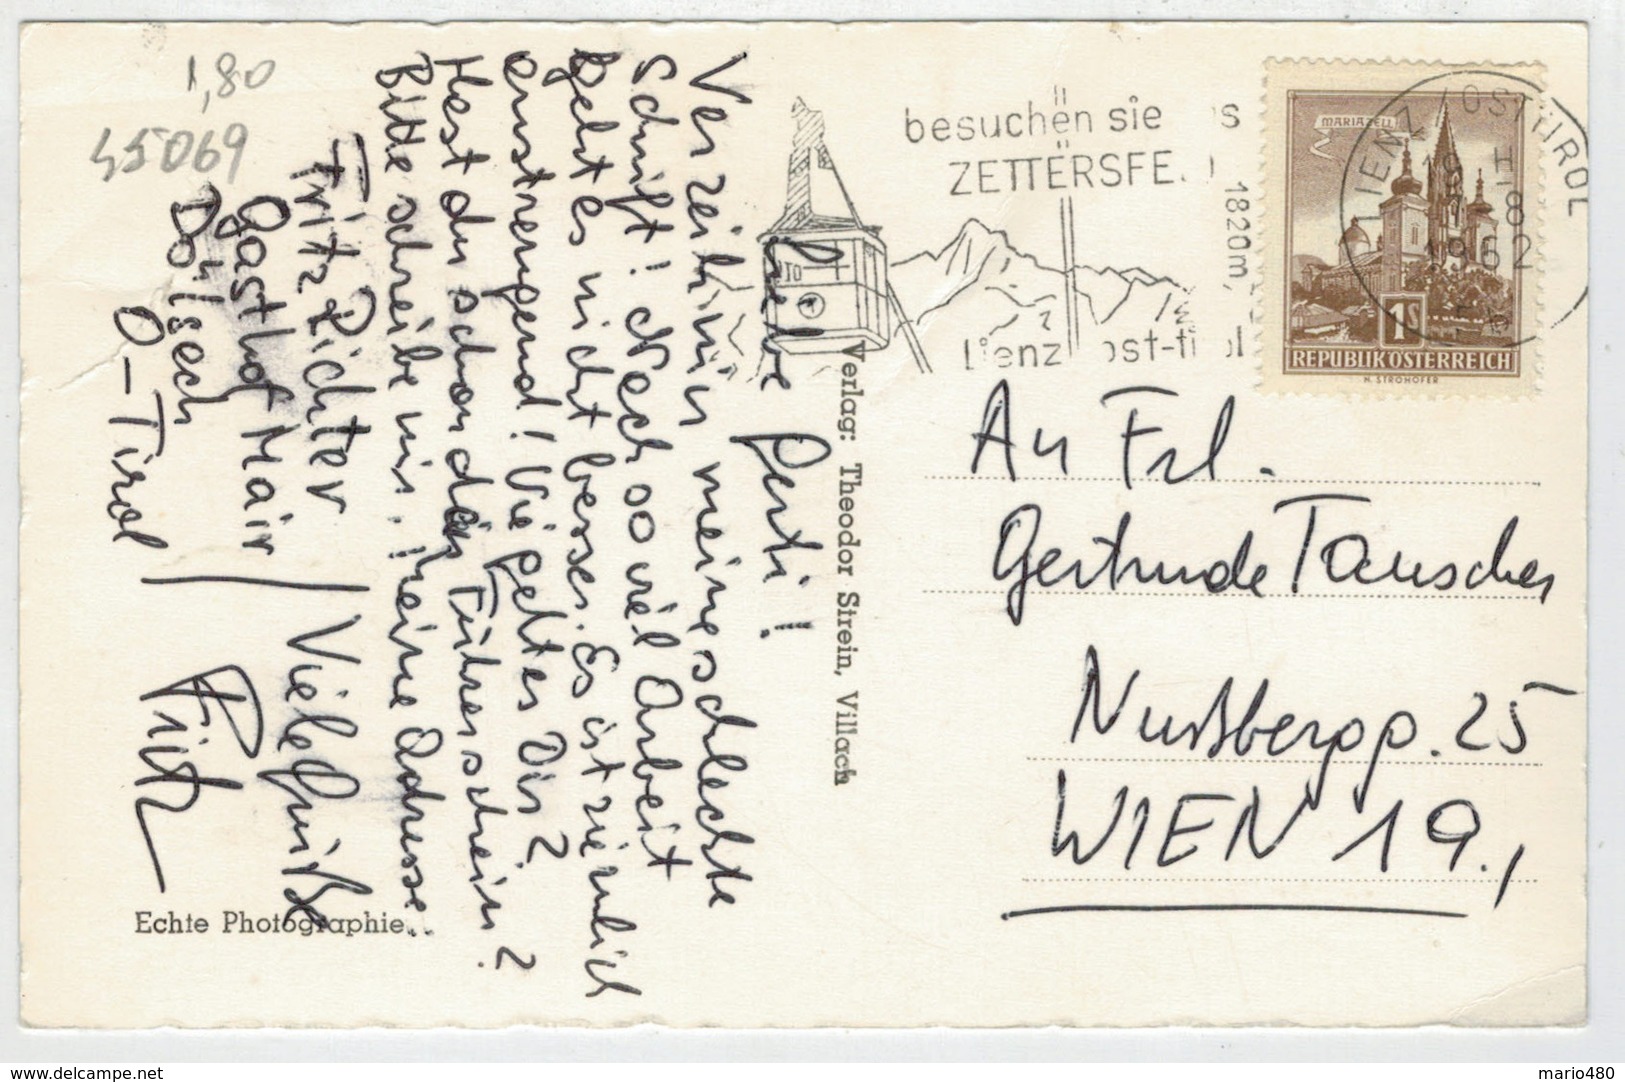 1,80
45069
Liebe Gerti!
Verzeih mir meine schlechte
Schrift! Nach so viel Arbeit
geht es nicht besser. Es ist ziemlich
anstrengend! Wie geht es Dir?
Hast du schon den Führerschein?
Bitte schreibe mir. Meine Adresse
Fritz Richter
Gasthof Mair
Dölsach
O-Tirol
Viele Grüße
Fritz
Echte Photographie
Verlag: Theodor Strein, Villach
besuchen sie
ZETTERSFE
1820m,
Lienz ost-tirol
LIENZ / OSTTIROL
1962
MARIAZELL
1S
REPUBLIK ÖSTERREICH
H. STROHOFER
An Frl.
Gertrude Tauscher
Nußbergg. 25
WIEN 19.,
delcampe.net
mario480